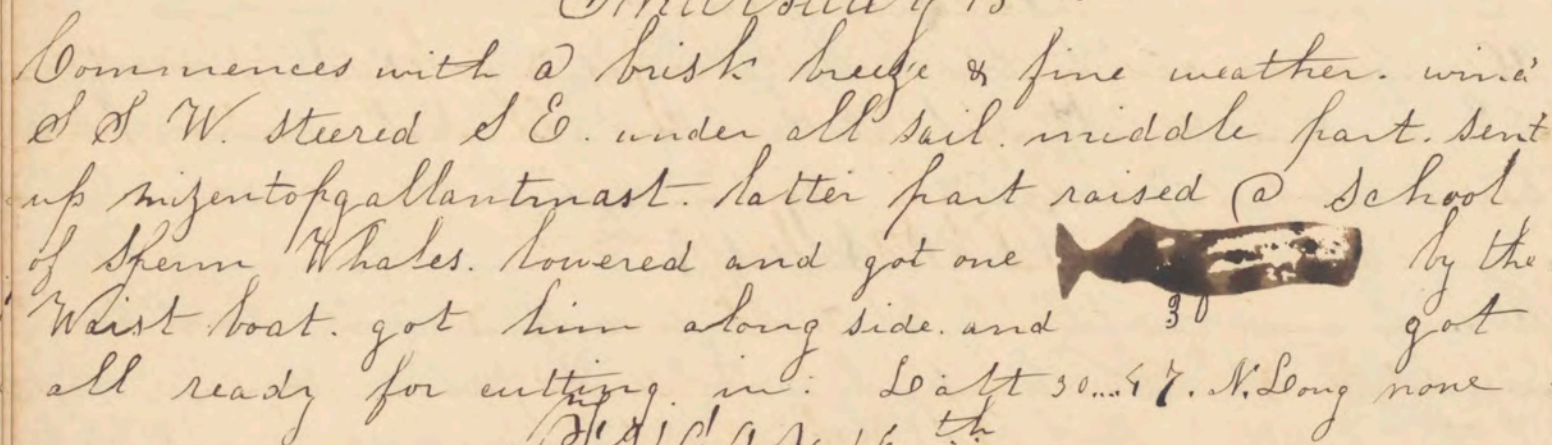 Thursday 15
Commences with a brisk breeze & fine weather. wind
S S W. steered S E. under all sail. middle part. sent
up mizentopgallantmast. latter part raised a school
of Sperm Whales. lowered and got one by the
Waist boat. got him along side. and 30 got
all ready for cutting in: Latt 30...47. N. Long none
Friday 16th